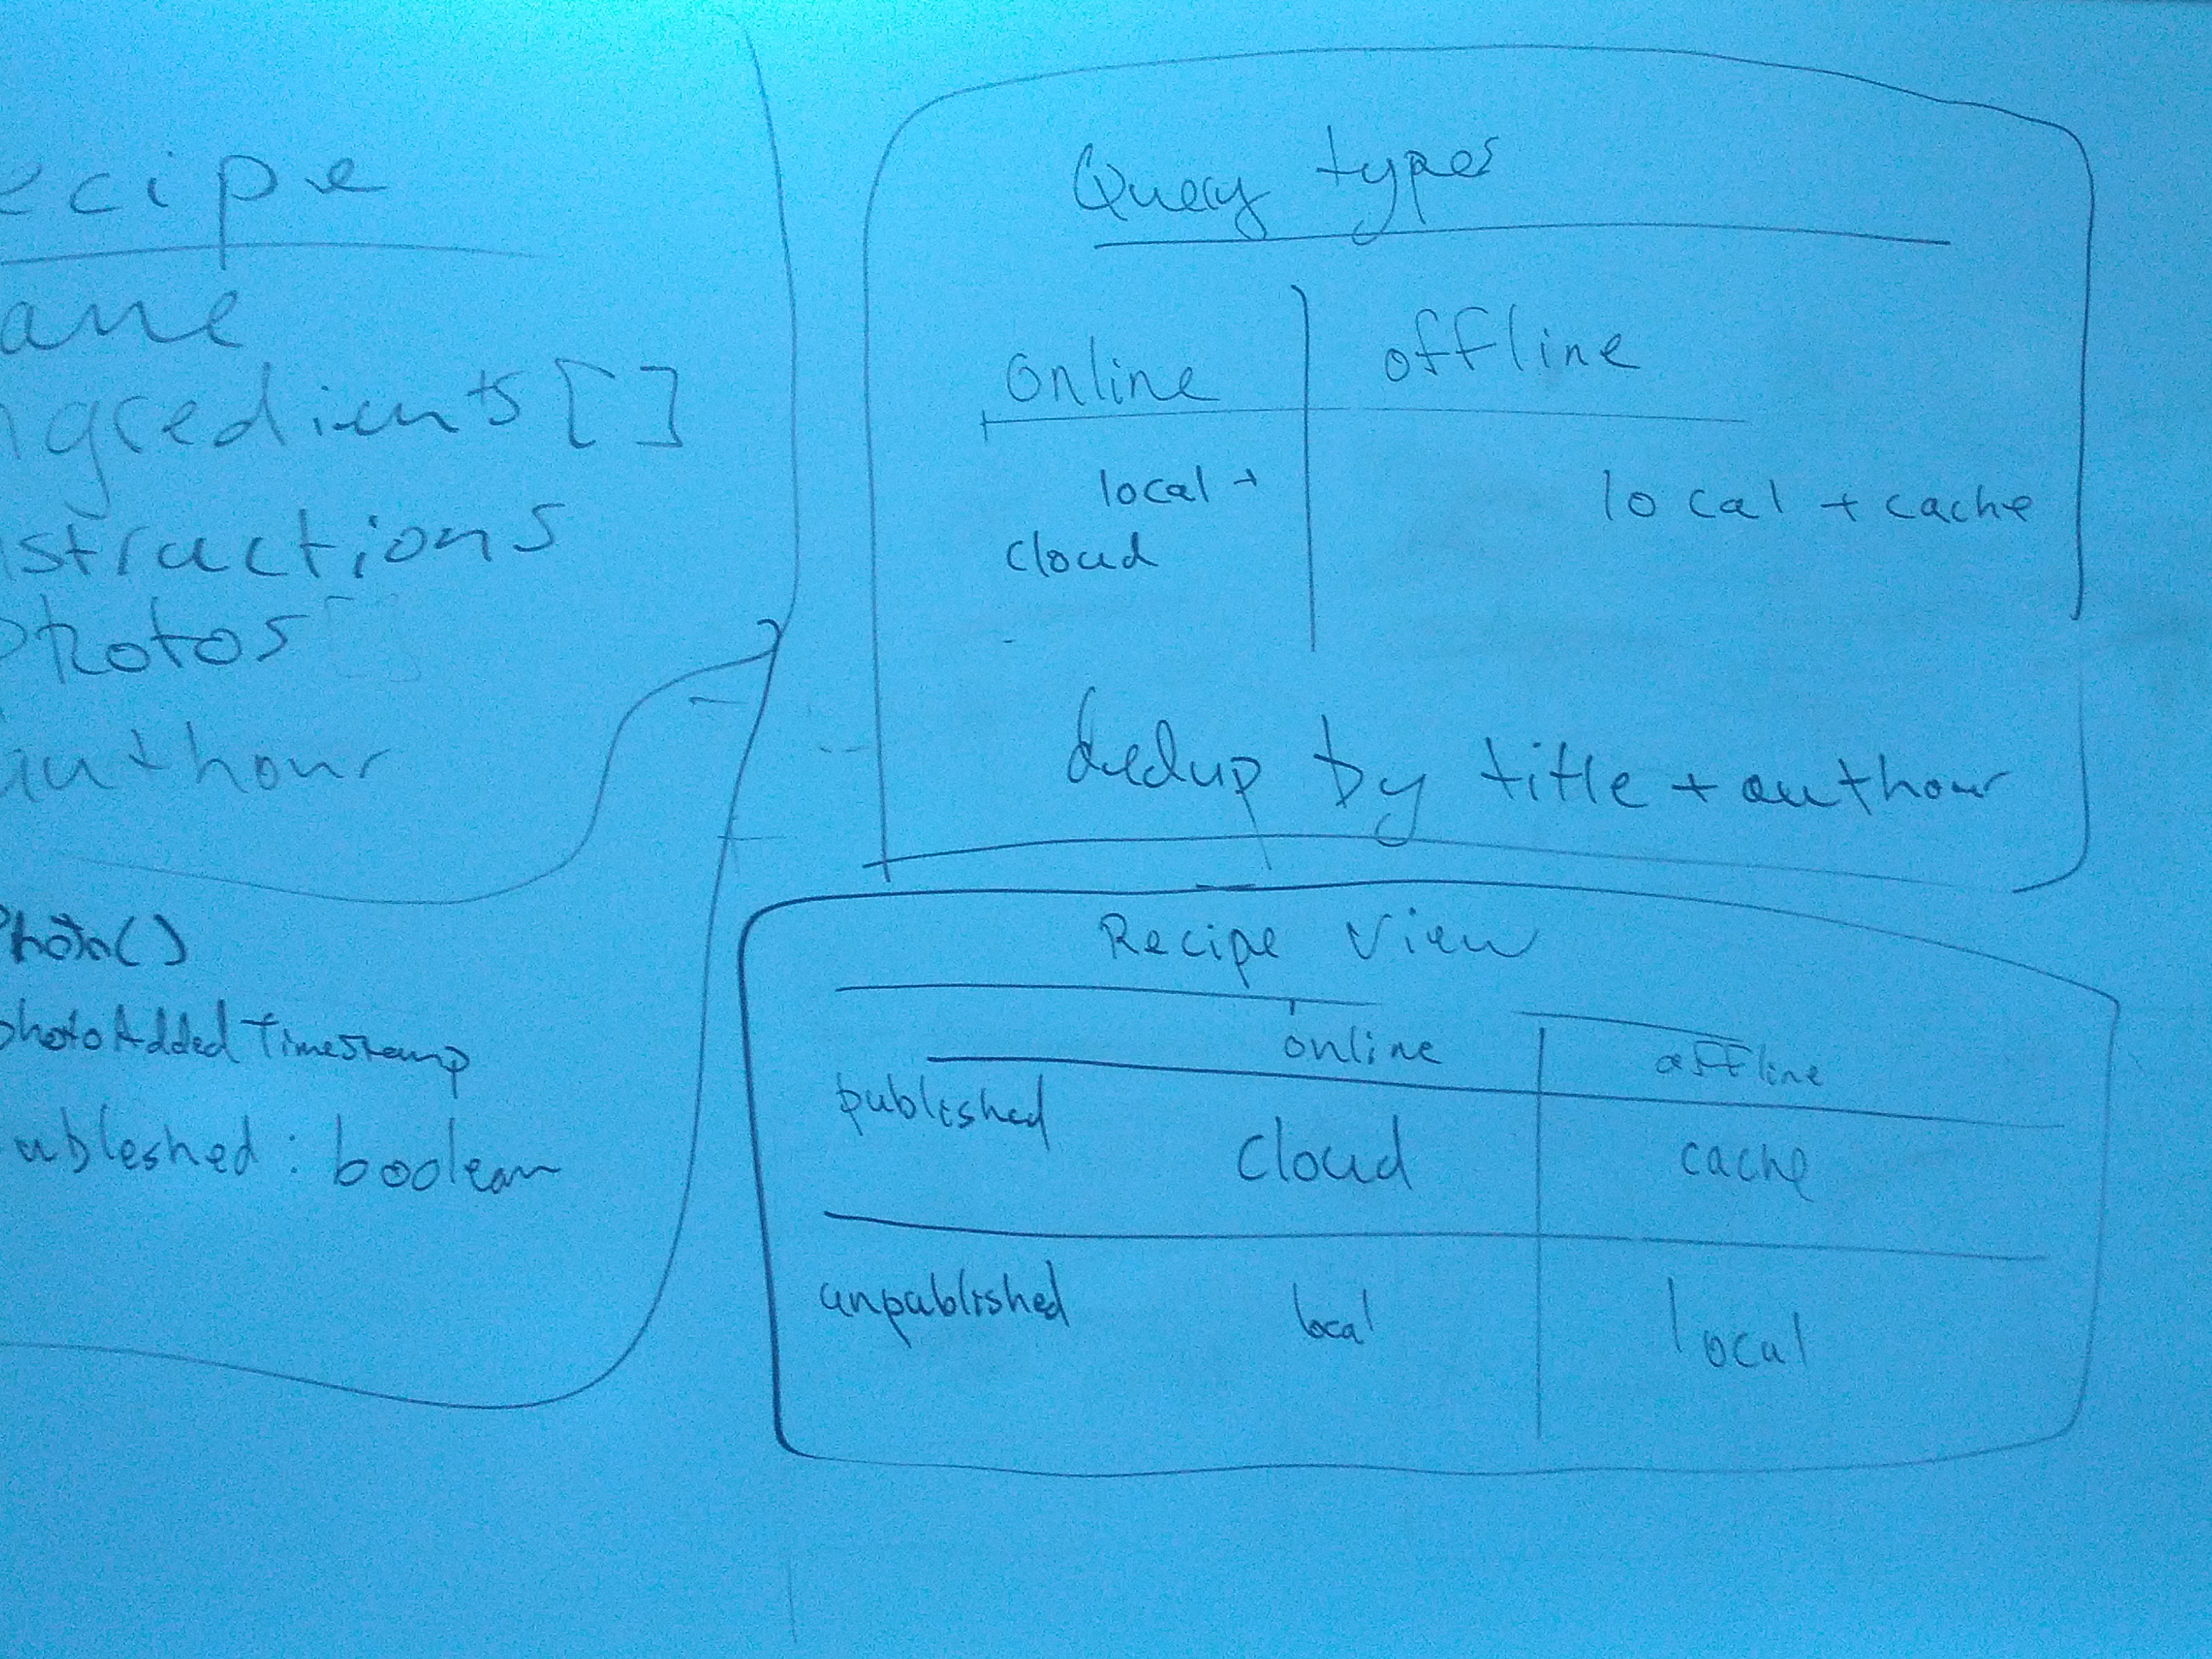 ecipe
ame
ngredients[]
structions
Photos
authour
Photo()
photoAddedTimestamp
ubleshed: boolean
Query types
online offline
local + local + cache
cloud
dedup by title + authour
Recipe View
online offline
published cloud cache
unpublished local local